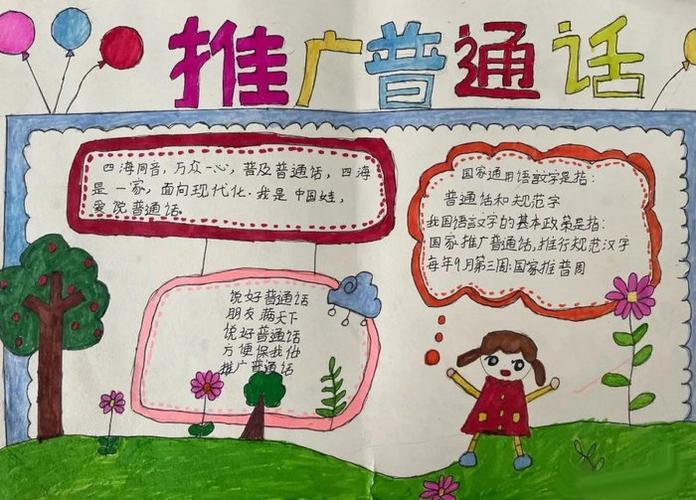 推广普通话
四海同音，万众一心，普及普通话，四海
是一家，面向现代化.我是中国娃，
爱说普通话.
国家通用语言文字是指：
普通话和规范字
我国语言文字的基本政策是指：
国家推广普通话，推行规范汉字
每年9月第三周:国家推普周
说好普通话
朋友满天下
说好普通话
方便你我他
推广普通话